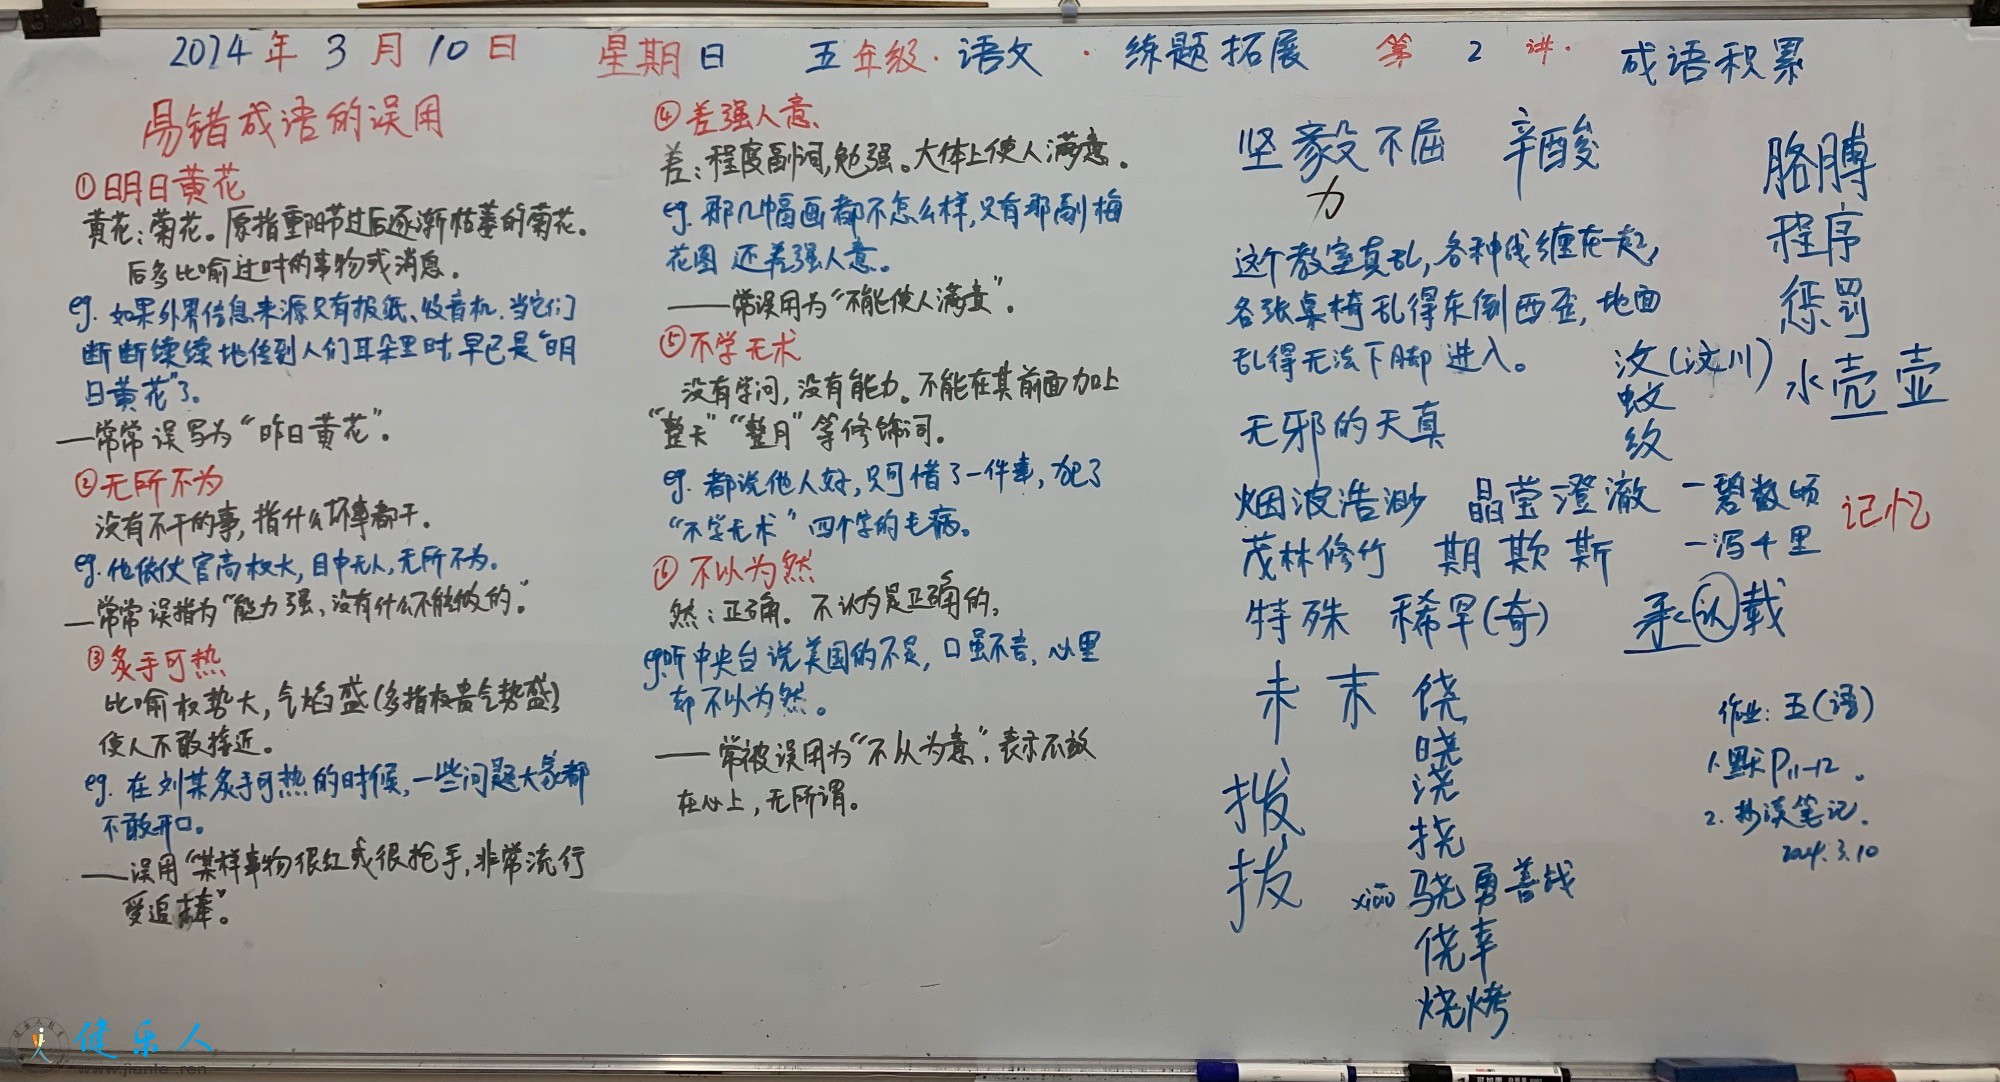 2024年3月10日 星期日 五年级·语文·练题拓展 第2讲· 成语积累
易错成语的误用
①明日黄花
黄花：菊花。原指重阳节过后逐渐枯萎的菊花。
后多比喻过时的事物或消息。
eg. 如果外界信息来源只有报纸、收音机，当它们
断断续续地传到人们耳朵里时，早已是“明
日黄花”了。
—常常误写为“昨日黄花”。
②无所不为
没有不干的事，指什么坏事都干。
eg. 他依仗官高权大，目中无人，无所不为。
—常常误指为“能力强，没有什么不能做的。”
③炙手可热
比喻权势大，气焰盛（多指权贵气势盛）
使人不敢接近。
eg. 在刘某炙手可热的时候，一些问题大家都
不敢开口。
——误用“某样事物很红或很抢手，非常流行
受追捧”。
④差强人意
差：程度副词，勉强。大体上使人满意。
eg. 那几幅画都不怎么样，只有那副梅
花图还差强人意。
——常误用为“不能使人满意”。
⑤不学无术
没有学问，没有能力。不能在其前面加上
“整天”“整月”等修饰词。
eg. 都说他人好，只可惜了一件事，犯了
“不学无术”四个字的毛病。
⑥不以为然
然：正确。不认为是正确的。
eg.听中央台说美国的不足，口虽不言，心里
却不以为然。
——常被误用为“不以为意”，表示不放
在心上，无所谓。
坚毅不屈 辛酸
力
这个教室真乱，各种线缠在一起，
各张桌椅乱得东倒西歪，地面
乱得无法下脚进入。
无邪的天真
烟波浩渺 晶莹澄澈 一碧数顷
茂林修竹 期 欺 斯 一泻千里
特殊 稀罕(奇) 承认载
未 末 饶
晓
浇
挠
xiāo 骁勇善战
侥幸
烧烤
拨
拔
胳膊
程序
惩罚
水壳 壶
汶(汶川)
蚊
纹
记忆
作业：五(语)
1.默P11-12。
2. 抄读笔记.
2024.3.10
健乐人
www.jianle.ren